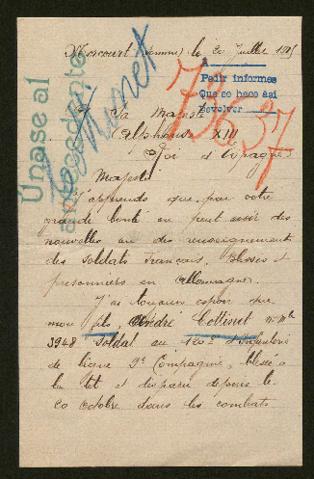 (Somme) le 20 Juillet 1915
Unase al
antecedente
Pedir informes
Que se hace así
devolver
73637
Sa Majesté
Alphonse XIII
Roi d'Espagne
Majesté
J'apprends que par votre
grande bonté on peut avoir des
nouvelles ou des renseignements
des soldats français, Blessés et
prisonniers en Allemagne.
J'ai toujours espoir que
mon fils André Cottinet
3948 soldat au 120e d'Infanterie
de ligne 9e Compagnie, blessé à
la tête et disparu depuis le
20 octobre dans les combats